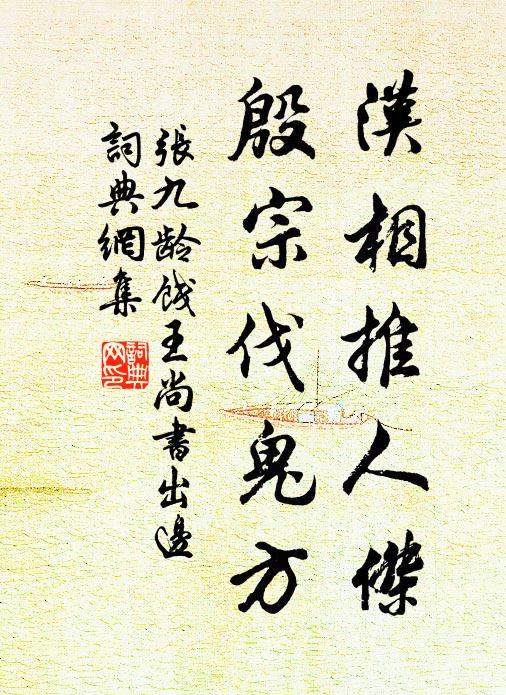 漢相推人傑
殷宗伐鬼方
張九龄餞王尚書出邊
詞典網集
詞典网印